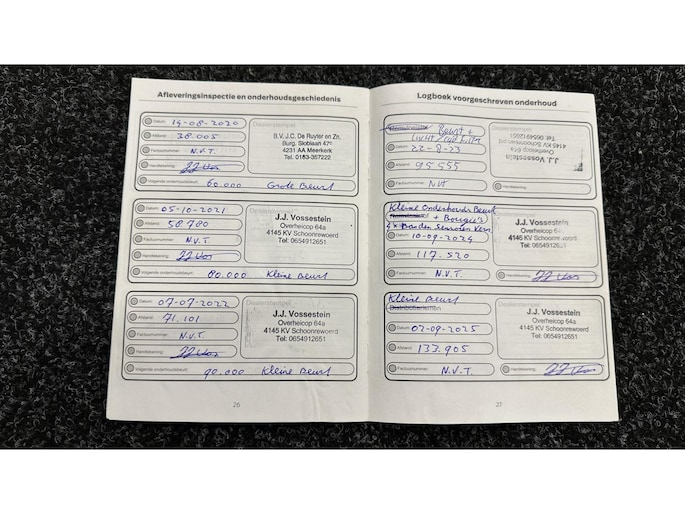 Afleveringsinspectie en onderhoudsgeschiedenis
Datum: 14-08-2020
Afstand: 38.005
Factuurnummer: N.V.T.
Handtekening:
Volgende onderhoudsbeurt: 60.000 Grote Beurt
Dealerstempel
B.V. J.C. De Ruyter en Zn.
Burg. Sloblaan 47c
4231 AA Meerkerk
Tel. 0183-357222
Datum: 05-10-2021
Afstand: 58.780
Factuurnummer: N.V.T
Handtekening:
Volgende onderhoudsbeurt: 80.000 Kleine Beurt
J.J. Vossestein
Overheicop 64a
4145 KV Schoonrewoerd
Tel: 0654912651
Datum: 07-07-2022
Afstand: 71.101
Factuurnummer: N.V.T.
Handtekening:
Volgende onderhoudsbeurt: 90.000 Kleine Beurt
Dealerstempel
J.J. Vossestein
Overheicop 64a
4145 KV Schoonrewoerd
Tel: 0654912651
26
Logboek voorgeschreven onderhoud
Beurt +
Datum: 22-8-23
Afstand: 95 555
Factuurnummer: NVT
Handtekening:
J.J. Vossestein
Overheicop 64a
4145 KV Schoonrewoerd
Tel: 0654912651
Kleine Onderhouds Beurt
+ Bougie's)
4x Banden Sensoren Vern.
Datum: 10-09-2024
Afstand: 117.520
Factuurnummer: N.V.T.
Handtekening:
J.J. Vossestein
Overheicop 64a
4145 KV Schoonrewoerd
Tel: 0654912651
Kleine Beurt
Distributieriemen
Datum: 02-09-2025
Afstand: 133.905
Factuurnummer: N.V.T.
Handtekening:
Dealerstempel
J.J. Vossestein
Overheicop 64a
4145 KV Schoonrewoerd
Tel: 0654912651
27